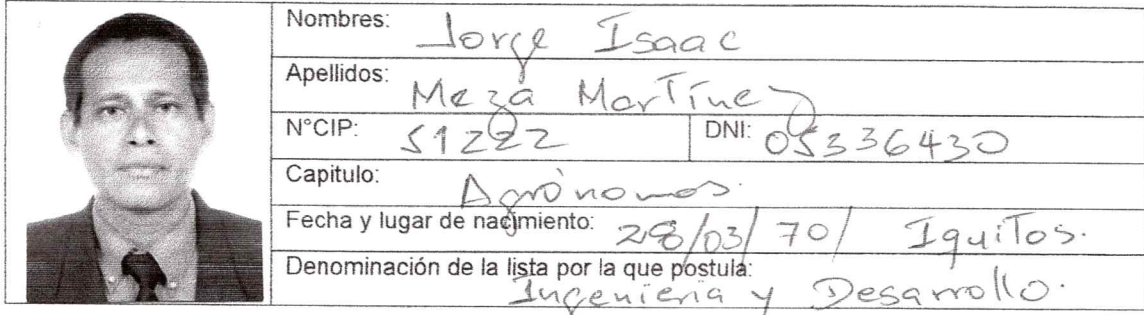 Nombres: Jorge Isaac
Apellidos: Meza Martínez
N°CIP: 51222 DNI: 05336430
Capitulo: Agrónomos.
Fecha y lugar de nacimiento: 28/03/70/ Iquitos.
Denominación de la lista por la que postula:
Ingenieria y Desarrollo.